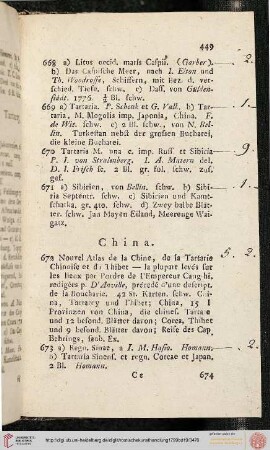 449
668 a) Litus occid. maris Caspii. (Gerber). 2.
b) Das Caspische Meer, nach I. Elton und
Th. Woodroofe, Schiffern, mit Bez. d. ver-
schied. Tiefe. schw. c) Dass. von Gülden-
städt. 1776. ½ Bl. schw.
669 a) Tartaria. P. Schenk et G. Valk. b) Tar-
taria, M. Mogolis imp. Japonia, China. F.
de Wit. schw. c) 2 Bl. schw., von N. Bel-
lin. Turkestan nebst der grossen Bucharei,
die kleine Bucharei. 1.
670 Tartaria M. una c. imp. Russ. et Sibiria 9.
P. I. von Stralenberg. I. A. Matern del.
D. I. Frisch sc. 2 Bl. gr. fol. schw. zus.
gef.
671 a) Sibirien, von Bellin. schw. b) Sibi- 1.
ria Septentr. schw. c) Sibirien und Kamt-
schatka. gr. 4to. schw. d) Zwey halbe Blät-
ter. schw. Jan Mayen Eiland, Meerenge Wai-
gatz.
China.
672 Nouvel Atlas de la Chine, de la Tartarie 5. 2.
Chinoise et du Thibet — la plupart levés sur
les lieux par l'ordre de l'Empereur Cang hi,
redigées p. D'Anville, précédé d'une descript.
de la Boucharie. 42 St. Karten. schw. Chi-
na, Tartarey und Thibet; China, 15
Provinzen von China, die chines. Tartarei
und 12 besond. Blätter davon; Corea, Thibet
und 9 besond. Blätter davon; Reise des Cap.
Behrings, saub. Ex.
673 a) Regn. Sinae, a I. M. Hasio. Homann. 2.
b) Tartaria Sinens. et regn. Coreae et Japan.
2 Bl. Homann.
C c 674